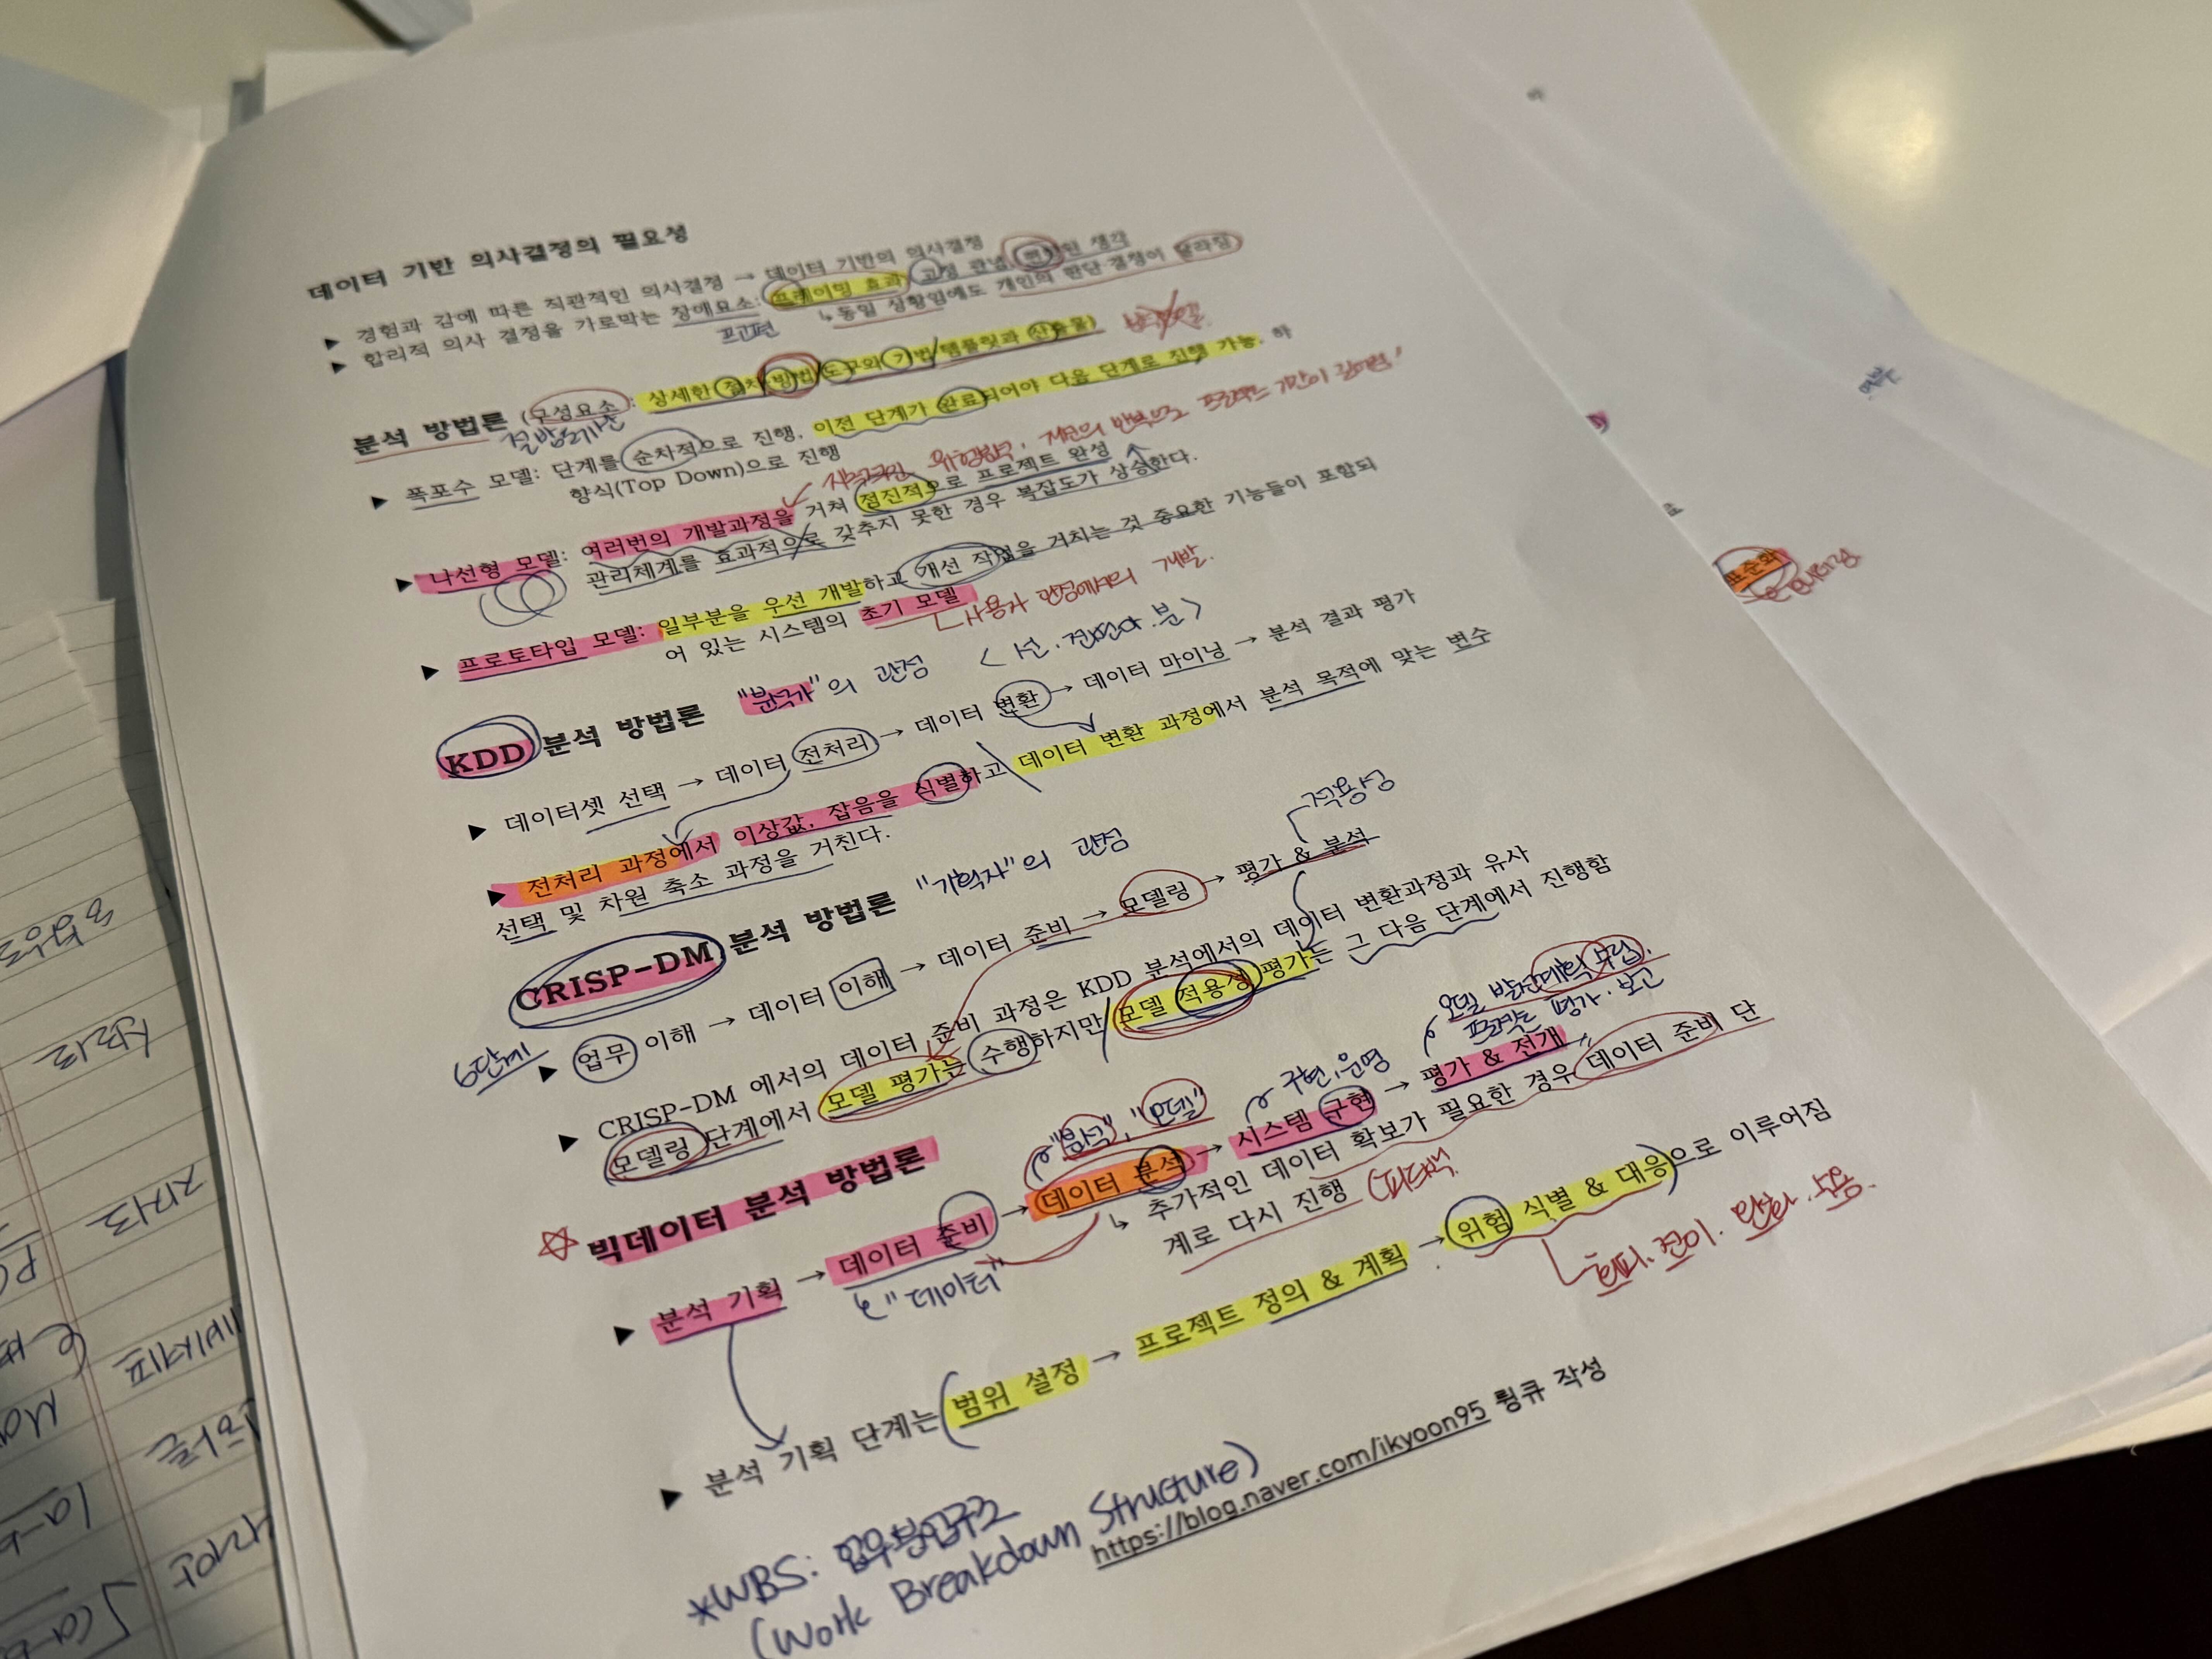 데이터 기반 의사결정의 필요성
▶ 경험과 감에 따른 직관적인 의사결정 → 데이터 기반의 의사결정
▶ 합리적 의사 결정을 가로막는 장애요소: 프레이밍 효과, 고정 관념, 편향된 생각
프고편
↳ 동일 상황임에도 개인의 판단·결정이 달라짐
분석 방법론 (구성요소 : 상세한 절차, 방법, 도구와 기법, 템플릿과 산출물)
▶ 폭포수 모델: 단계를 순차적으로 진행, 이전 단계가 완료되어야 다음 단계로 진행 가능. 하
향식(Top Down)으로 진행
▶ 나선형 모델: 여러번의 개발과정을 거쳐 점진적으로 프로젝트 완성
관리체계를 효과적으로 갖추지 못한 경우 복잡도가 상승한다.
▶ 프로토타입 모델: 일부분을 우선 개발하고 개선 작업을 거치는 것 중요한 기능들이 포함되
어 있는 시스템의 초기 모델
사용자 관점에서의 개발.
KDD 분석 방법론 "분석가"의 관점
▶ 데이터셋 선택 → 데이터 전처리 → 데이터 변환 → 데이터 마이닝 → 분석 결과 평가
▶ 전처리 과정에서 이상값, 잡음을 식별하고 데이터 변환 과정에서 분석 목적에 맞는 변수
선택 및 차원 축소 과정을 거친다.
CRISP-DM 분석 방법론 "기획자"의 관점
적용성
6단계
▶ 업무 이해 → 데이터 이해 → 데이터 준비 → 모델링 → 평가 & 분석
▶ CRISP-DM 에서의 데이터 준비 과정은 KDD 분석에서의 데이터 변환과정과 유사
모델링 단계에서 모델 평가는 수행하지만 모델 적용성 평가는 그 다음 단계에서 진행함
모델 발전계획 수립.
프로젝트 평가·보고
빅데이터 분석 방법론
"분석", "모델"
구현, 운영
▶ 분석 기획 → 데이터 준비 → 데이터 분석 → 시스템 구현 → 평가 & 전개
"데이터"
↳ 추가적인 데이터 확보가 필요한 경우 데이터 준비 단
계로 다시 진행 (피드백
▶ 분석 기획 단계는 범위 설정 → 프로젝트 정의 & 계획 → 위험 식별 & 대응으로 이루어짐
회피. 전이. 완화. 수용.
*WBS: 업무분업구조
(Work Breakdown Structure)
https://blog.naver.com/ikyoon95 륑큐 작성
표준화